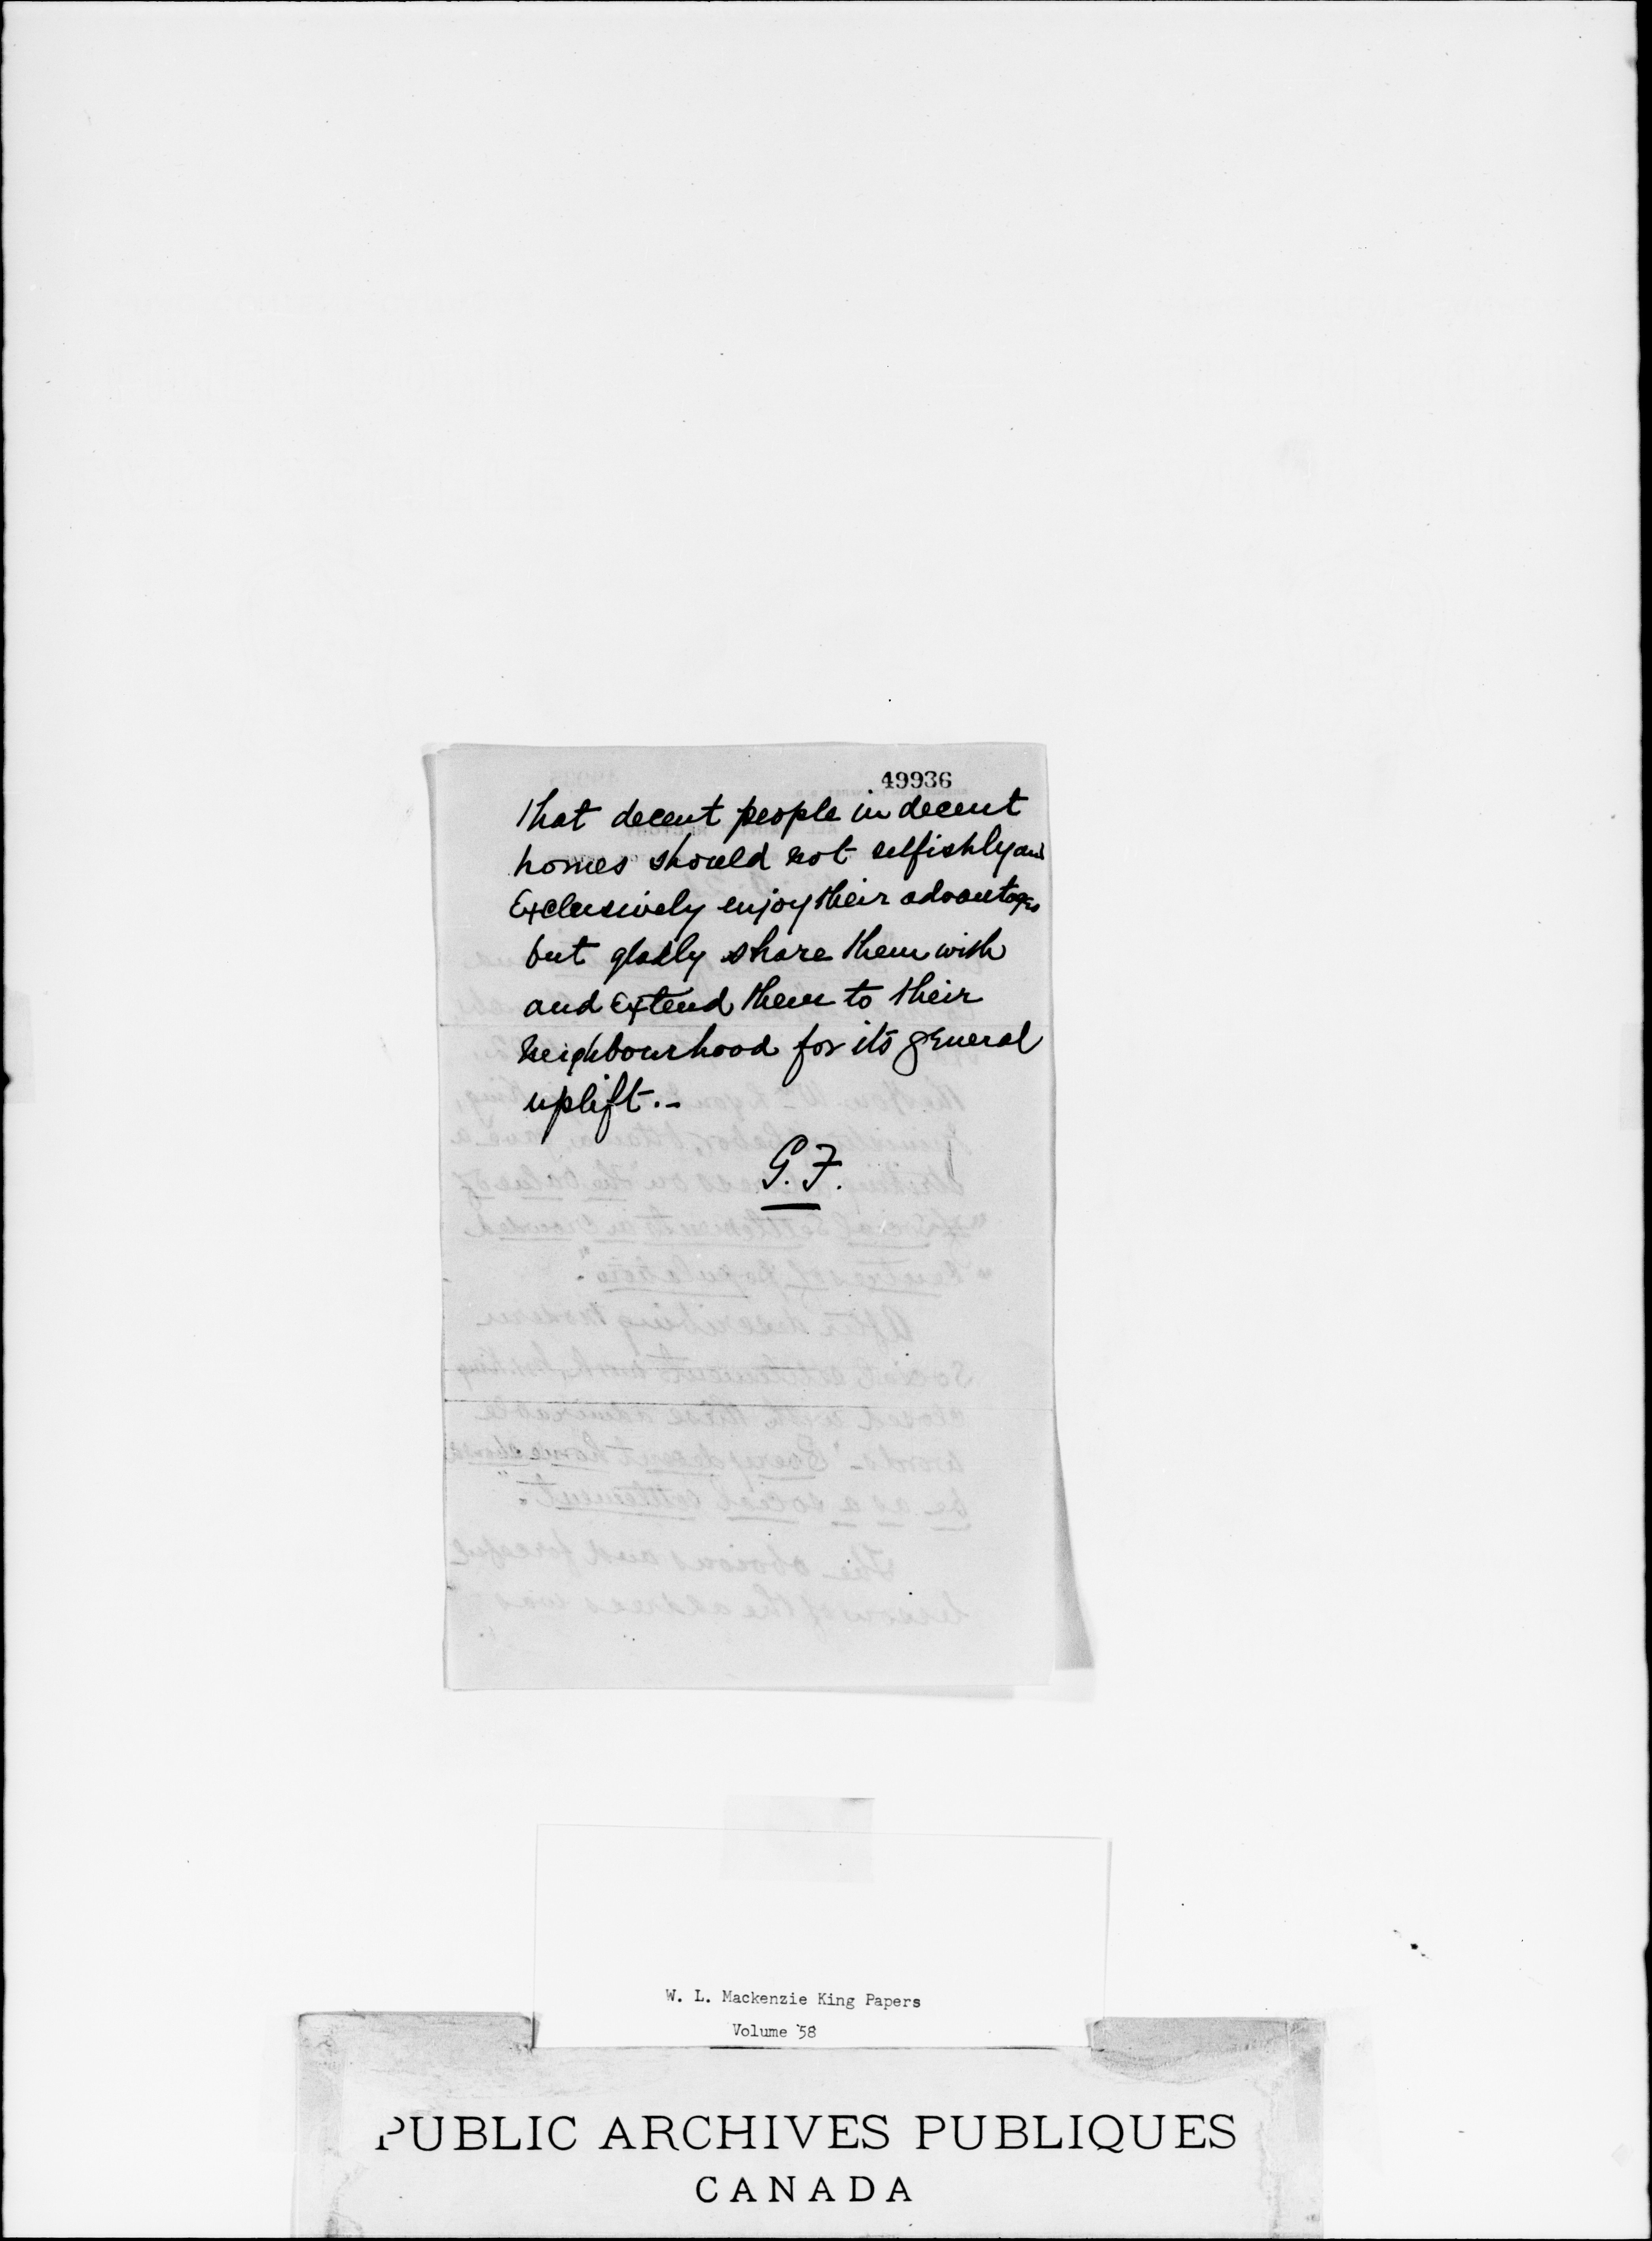 49936
that decent people in decent
homes should not selfishly and
Exclusively enjoy their advantages
but gladly share them with
and extend them to their
neighbourhood for its general
uplift.-
G.F.
W. L. Mackenzie King Papers
Volume 58
PUBLIC ARCHIVES PUBLIQUES
CANADA